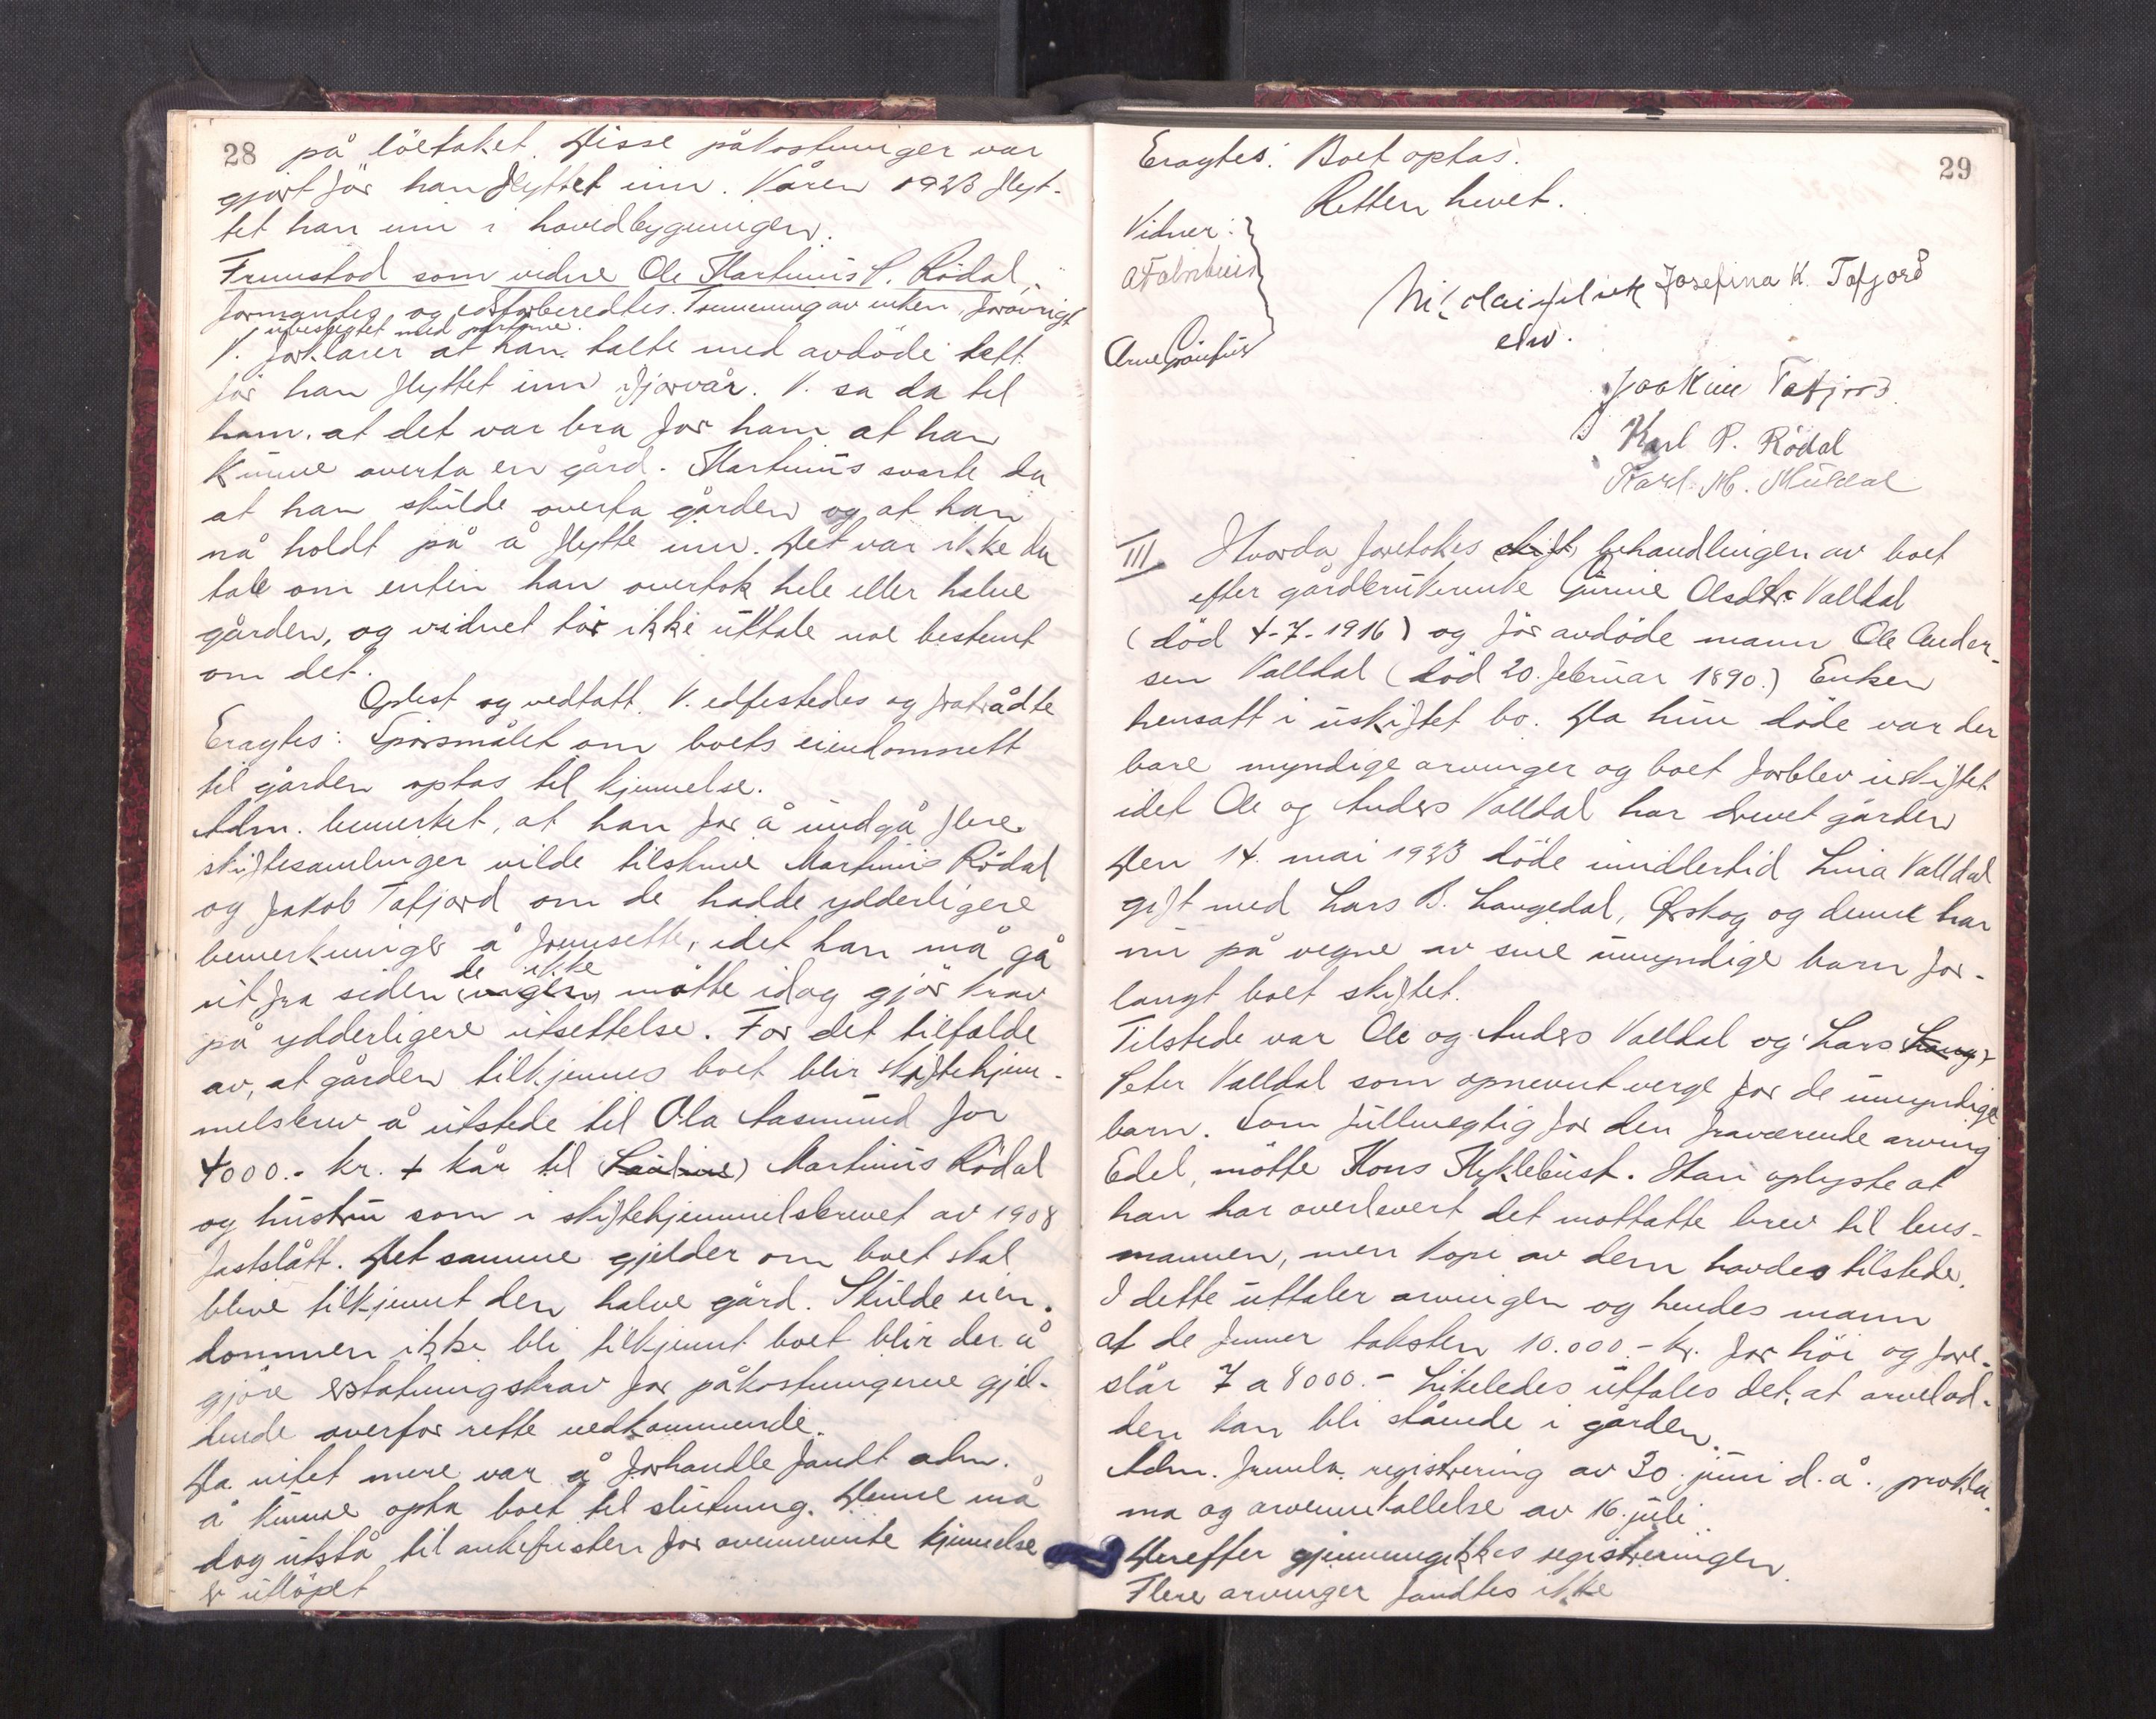 28 på löetaket. Disse påkostninger var
gjort før han flyttet inn. Våren 1923 flyt-
tet han inn i hovedbygningen.
Fremstod som vidne Ole Martinus P. Rödal,
formantes og edsforberedtes. av forøvrigt
ubeslegtet med partene.
V. forklarer at han talte med avdöde tett
för han flyttet inn ifjorvår. V. sa da til
ham. at det var bra for ham at han
kunne overta en gård. Martinus svarte da
at han skulde overta gården og at han
nå holdt på å flytte inn. Det var ikke da
tale om enten han overtok hele eller halve
gården, og vidnet tör ikke uttale noe bestemt
om det.
Oplest og vedtatt. V. edfestedes og fratrådte
Eragtes: Spörsmålet om boets eiendomsrett
til gården optas til kjennelse.
Adm. bemerket, at han for å undgå flere
skiftesamlinger vilde tilskrive Martinus Rödal
og Jakob Tafjord om de hadde ydderligere
bemerkninger å fremsette, idet han må gå
ut fra siden de ikke mötte idag gjör krav
på ydderligere utsettelse. For det tilfelde
av, at gården tilkjennes boet blir skiftehjem-
melsbrev å utstede til Ola Aasmund for
4000.- kr. + kår til (Pauline) Martinus Rödal
og hustru som i skiftehjemmelsbrevet av 1908
fastslått. Det samme gjelder om boet skal
blive tilkjennt den halve gård. Skulde eien-
dommen ikke bli tilkjennt boet blir der å
gjöre erstatningskrav for påkostningene gjel-
dende overfor rette vedkommende.
Da intet mere var å forhandle fandt adm.
å kunne opta boet til slutning. Denne må
dog utstå til ankefristen for ovennevnte kjennelse
er utlöpet
29
Eragtes: Boet optas.
Retten hevet.
Vidner:
Arne
Nikolai Josefina K. Tafjord
Joakim Tafjord
Karl P. Rödal
Karl M. Muldal
III. Hvorda foretokes skift behandlingen av boet
efter gårdbrukerenke Gurine Olsdtr Valldal
(död 4-7-1916) og för avdöde mann Ole Ander-
sen Valldal (död 20. februar 1890.) Enken
hensatt i uskiftet bo. Da hun döde var der
bare myndige arvinger og boet forblev uskiftet
idet Ole og Anders Valldal har drevet gården
Den 14. mai 1923 döde imidlertid Lina Valldal
gift med Lars B. Langedal, Ørskog og denne har
nu på vegne av sine umyndige barn for-
langt boet skiftet.
Tilstede var Ole og Anders Valldal og Lars Lang
Peter Valldal som opnevnt verge for de umyndige
barn. Som fullmegtig for den fraværende arving
Edel, mötte Hons Myklebust. Han oplyste at
han har overlevert det mottatte brev til lens-
mannen, men kopi av dem havdes tilstede.
I dette uttaler arvingen og hendes mann
at de finner taksten 10.000.- kr. for höi og fore-
slår 7 a 8000.- Likeledes uttales det, at arvelod-
den kan bli stående i gården.
Adm. fremla registrering av 30. juni d.å., prokla-
ma og arveinnkallelse av 16. juli.
Derefter gjennemgikkes registreringen.
Flere arvinger fandtes ikke